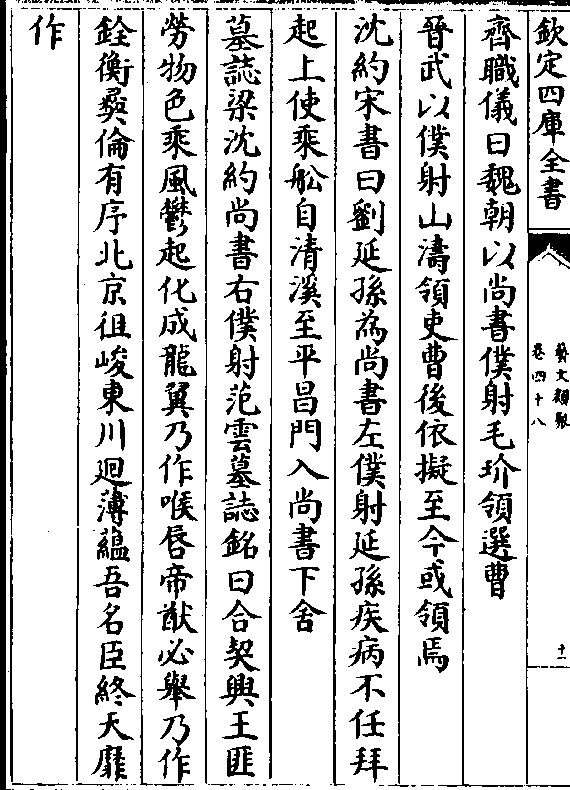 欽定四庫全書
藝文類聚
卷四十八
十一
齊職儀曰魏朝以尚書僕射毛玠領選曹
晉武以僕射山濤領吏曹後依擬至今或領焉
沈約宋書曰劉延孫為尚書左僕射延孫疾病不任拜
起上使乘船自清溪至平昌門入尚書下舍
墓誌梁沈約尚書右僕射范雲墓誌銘曰合契興王匪
勞物色乘風鬱起化成龍翼乃作喉唇帝猷必舉乃作
銓衡彛倫有序北京徂峻東川迴薄蘊吾名臣終天靡
作